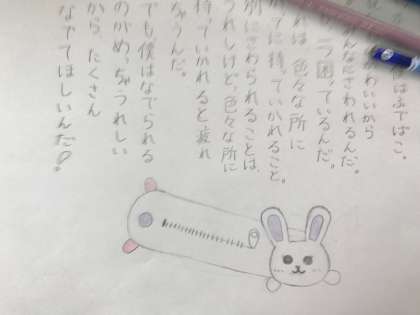 僕はふでばこ。
わいいから
んなにさわれるんだ。
つ困っているんだ。
れは、色々な所に
てに持っていかれること。
別にさわられることは、
うれしけど、色々な所に
持っていかれると疲れ
ちゃうんだ。
でも、僕はなでられる
のがめっちゃうれしい
から、たくさん
なでてほしいんだ!